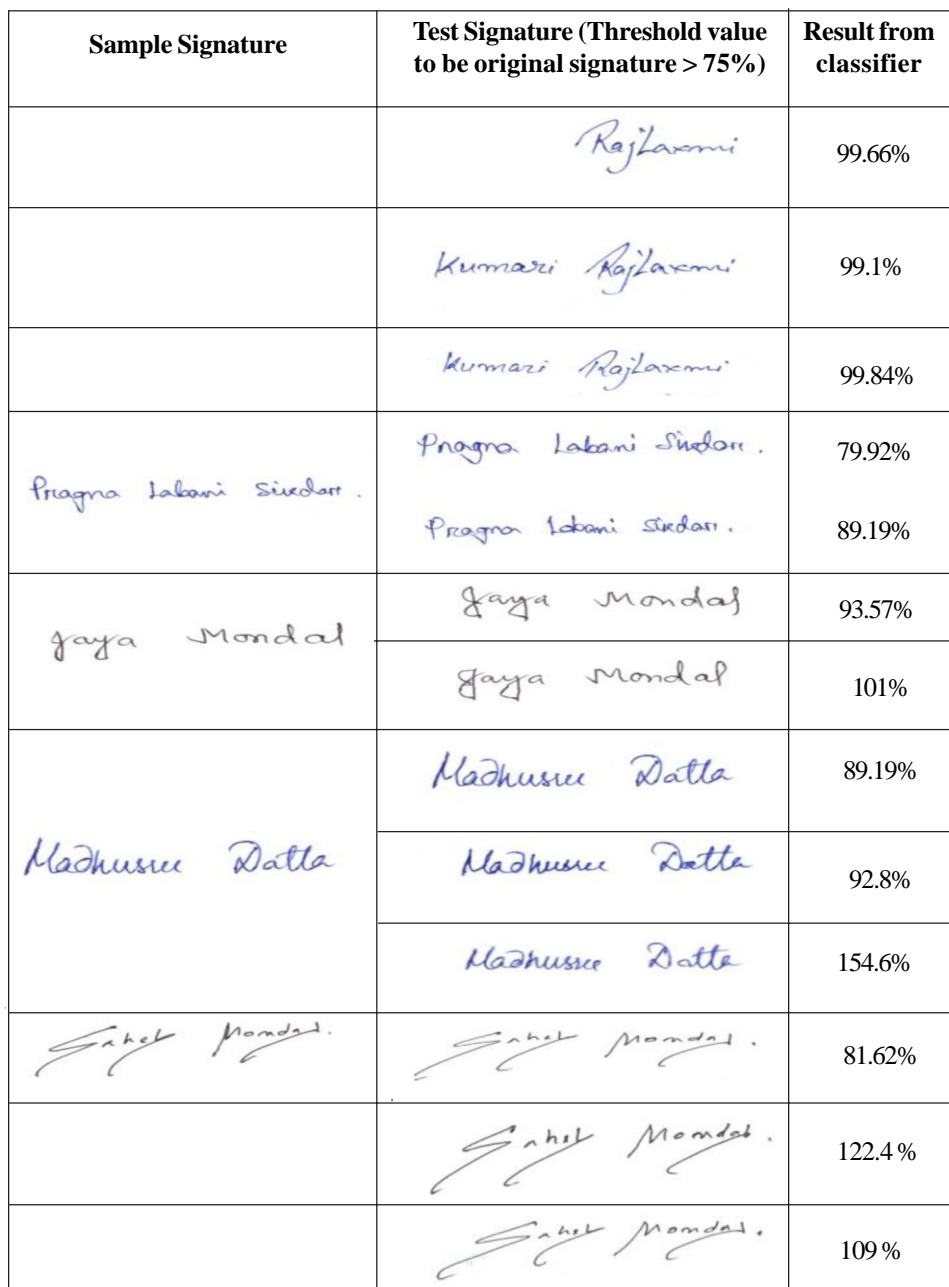 Sample Signature
Test Signature (Threshold value
to be original signature > 75%)
Result from
classifier
RajLaxmi
99.66%
Kumari RajLaxmi
99.1%
Kumari RajLaxmi
99.84%
Pragna Labani Sirdar.
Pragna Labani Sirdar.
79.92%
Pragna Labani Sirdar.
89.19%
Jaya Mondal
Jaya Mondal
93.57%
Jaya Mondal
101%
Madhusree Datta
Madhusree Datta
89.19%
Madhusree Datta
92.8%
Madhusree Datta
154.6%
Sahel Mondal.
Sahel Mondal.
81.62%
Sahel Mondal.
122.4 %
Sahel Mondal.
109 %